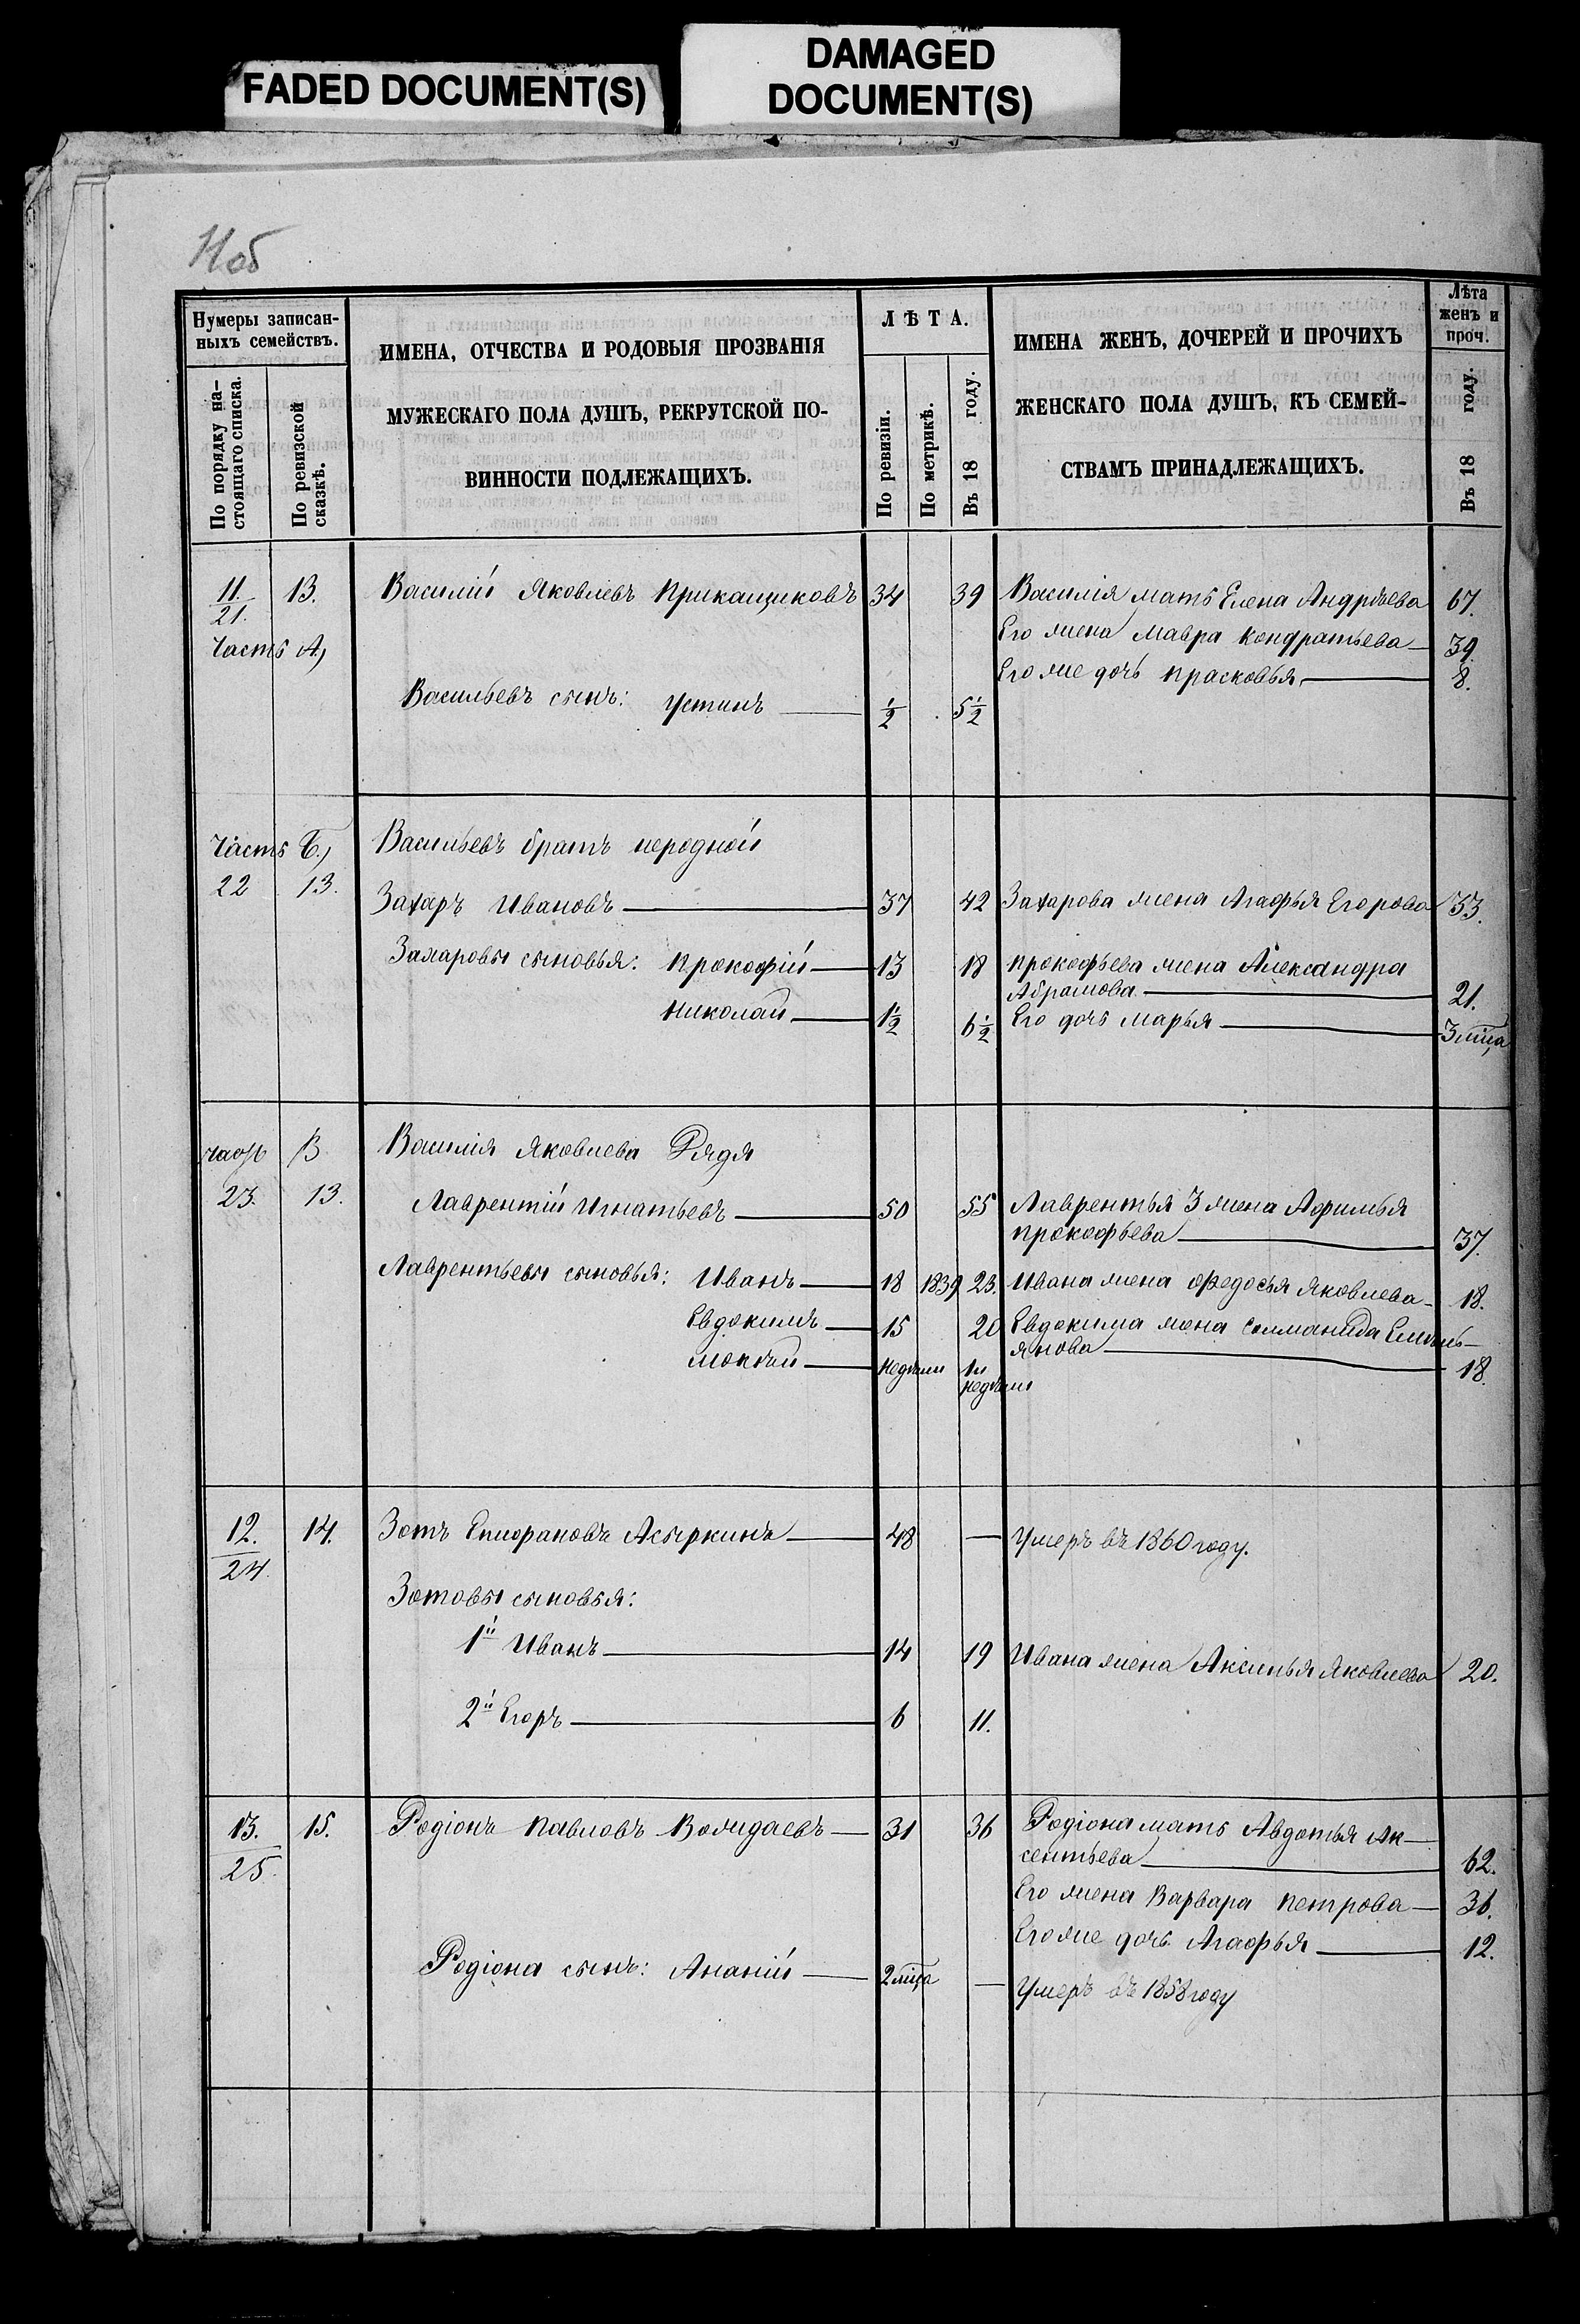 FADED DOCUMENT(S)
DAMAGED
DOCUMENT(S)
11об
Нумеры записан-
ныхъ семействъ.
По порядку на-
стоящаго списка.
По ревизской
сказкѣ.
ИМЕНА, ОТЧЕСТВА И РОДОВЫЯ ПРОЗВАНІЯ
МУЖЕСКАГО ПОЛА ДУШЪ, РЕКРУТСКОЙ ПО-
ВИННОСТИ ПОДЛЕЖАЩИХЪ.
ЛѢТА.
По ревизіи.
По метрикѣ.
Въ 18 году.
ИМЕНА ЖЕНЪ, ДОЧЕРЕЙ И ПРОЧИХЪ
ЖЕНСКАГО ПОЛА ДУШЪ, КЪ СЕМЕЙ-
СТВАМЪ ПРИНАДЛЕЖАЩИХЪ.
Лѣта
женъ и
проч.
Въ 18 году.
11. 13. Василій Яковлевъ Прикащиковъ 34 39 Василія мать Елена Андрѣева 67.
21.
Часть А) Его жена Мавра Кондратьева 39.
Его же дочь Прасковья 8.
Васильевъ сынъ: Устинъ 1/2 5 1/2
Часть Б) Васильевъ братъ неродной
22 13. Захаръ Ивановъ 37 42 Захарова жена Агафья Егорова 33.
Захаровы сыновья: Прокофій 13 18 Прокофьева жена Александра
Абрамова 21.
Николай 1 1/2 6 1/2 Его дочь Марья 3 мца
часть В Василія Яковлева Дядя
23. 13. Лаврентій Игнатьевъ 50 55 Лаврентья 3 жена Афимья
Прокофьева 37.
Лаврентьевы сыновья: Иванъ 18 1839 23. Ивана жена Федосья Яковлева 18.
Евдокимъ 15 20 Евдокима жена Соломанида Емель-
янова 18.
Мокѣй недѣли
недѣли
12. 14. Зотъ Епифановъ Асыркинъ 48 — Умеръ въ 1860 году.
24.
Зотовы сыновья:
1й Иванъ 14 19 Ивана жена Аксинья Яковлева 20.
2й Егоръ 6 11.
13. 15. Родіонъ Павловъ Волидаевъ 31 36 Родіона мать Авдотья Ак-
25. сентьева 62.
Его жена Варвара Петрова 36.
Его же дочь Агафья 12.
Родіона сынъ: Ананій 2 мца — Умеръ въ 1858 году